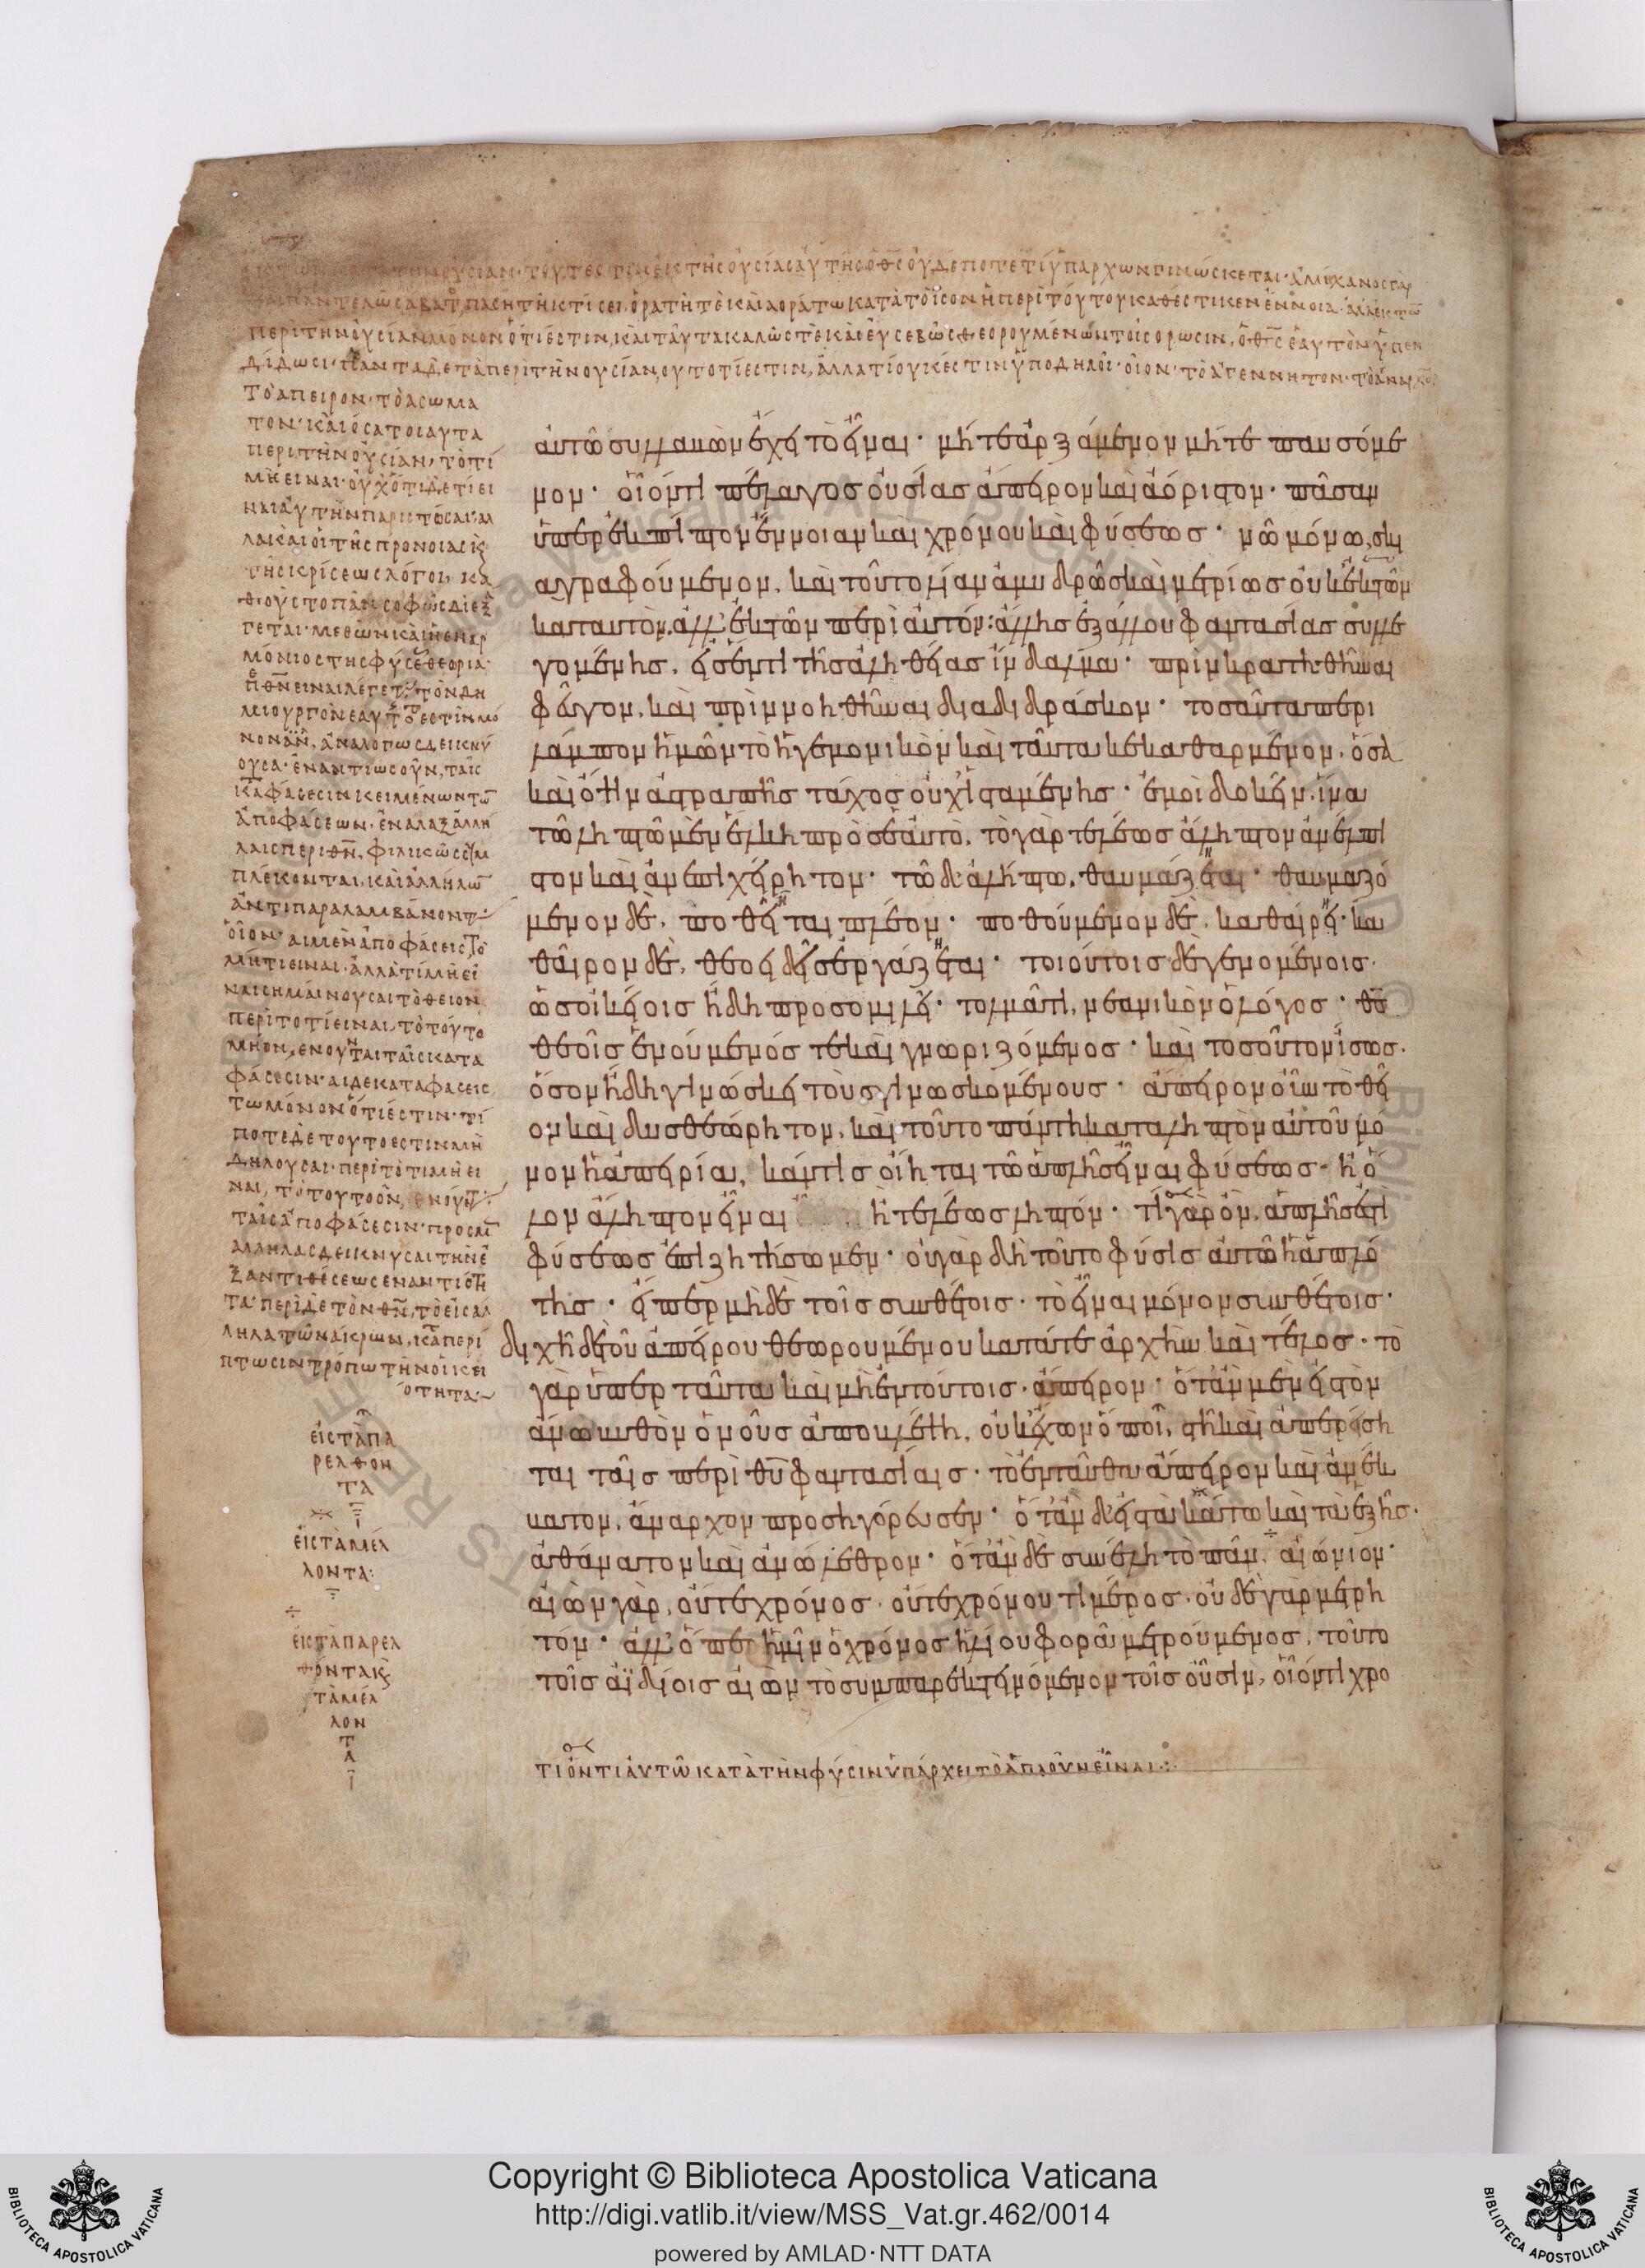 ἐκ τῶν κατὰ τὴν οὐσίαν· τουτέστιν ἐκ τῆς οὐσίας αὐτῆς ὁ θ̅ς̅ οὐδέποτέ τι ὑπάρχων γινώσκεται· ἀμήχανος γὰρ
καὶ παντελῶς ἄβατος πάσῃ τῇ κτίσει, ὁρατῇ τὲ καὶ ἀοράτω κατὰ τὸ ἴσον ἡ περὶ τούτου καθέστικεν ἔννοια· ἀλλ' ἐκ τῶν
περὶ τὴν οὐσίαν μόνον ὅτι ἐστιν, καὶ ταῦτα καλῶς τὲ καὶ εὐσεβῶς θεορουμένων τοῖς ὁρωσιν, ὁ θ̅ς̅ ἑαυτὸν ὑπεν
δίδωσι· πάντα δὲ τὰ περὶ τὴν οὐσίαν, οὐ τὸ τί ἐστιν, ἀλλὰ τί οὐκ ἐστιν ὑποδηλοῖ· οἷον· τὸ ἀγέννητον· τὸ ἄναρχον·
τὸ ἄπειρον· τὸ ἀσώμα
τον· καὶ ὅσα τοιαῦτα
περὶ τὴν οὐσίαν, τὸ τί
μὴ εἶναι· οὐχ' ὅτι δὲ τί εἶ
ναι αὐτὴν παριστῶσαι· ἀλ
λὰ καὶ οἱ τῆς προνοίας κ
τῆς κρίσεως λόγοι, κα
θ' οὓς τὸ πᾶν σοφῶς διεξά
γεται· μεθ' ὧν καὶ ἡ ἐναρ
μόνιος τῆς φύσεως θεορία
π θ̅ν̅ εἶναι λέγεται, τὸν δη
μιουργὸν ἑαυτῆς ὅτι ἐστὶν μό
νον ἀναλόγως δεικνύ
ουσα· ἐναντίως οὖν, ταῖς
καταφάσεσιν κειμένων τῶν
ἀποφάσεων· ἐναλὰξ ἀλλή
λαις περὶ θ̅ν̅, φιλικῶς συμ
πλέκονται, καὶ ἀλλήλων
ἀντιπαραλαμβάνονται
οἷον· αἱ μὲν ἀποφάσεις, τὸ
μὴ τί εἶναι· ἀλλὰ τί μὴ εἶ
ναι σημαίνουσαι τὸ θεῖον
περὶ τὸ τί εἶναι, τὸ τοῦτο
μὴ ὂν, ἑνοῦνται ταῖς κατα
φάσεσιν· αἱ δὲ καταφάσεις
τῶ μόνον ὅτι ἐστιν· τί
ποτε δὲ τοῦτο ἐστιν μὴ
δηλοῦσαι· περὶ τὸ τί μὴ εἶ
ναι, τὸ τοῦτο ὂν, ἑνοῦνται
ταῖς ἀποφάσεσιν· πρὸς μὲν
ἀλλήλας δεικνῦσαι τὴν ἐ
ξ ἀντιθέσεως ἐναντιότη
τα· περὶ δὲ τὸν θ̅ν̅, τὸ εἰς ἄλ
ληλα τῶν ἄκρων, κατὰ περί
πτωσιν τρόπω τὴν οἰκει
ότητα:
αὐτῶ συλλαβὼν ἔχει τὸ εἶναι· μήτε ἀρξάμενον μήτε παυσόμε
νον· οἷόν τι πέλαγος οὐσίας ἄπειρον καὶ ἀόριστον· πᾶσαν
ὑπερεκπίπτον ἔννοιαν καὶ χρόνου καὶ φύσεως· νῶ μόνω, σκι
αγραφούμενον, καὶ τοῦτο λίαν ἀμυδρῶς καὶ μετρίως οὐκ ἐκ τῶν
κατ' αυτὸν, ἀλλ' ἐκ τῶν περὶ αὐτόν: ἄλλης ἐξ ἄλλου φαντασίας συλλε
γομένης, εἰς ἕν τι τῆς ἀληθείας ἴνδαλμα· πρὶν κρατηθῆναι
φεῦγον, καὶ πρὶν νοηθῆναι διαδιδράσκον· τοσαῦτα περι
λάμπον ἡμῶν τὸ ἡγεμονικὸν καὶ ταῦτα κεκαθαρμένον, ὅσα
καὶ ὄψιν ἀστραπῆς τάχος οὐχ' ἱσταμένης· ἐμοὶ δοκεῖν, ἵνα
τῶ ληπτῶ μὲν ἕλκη πρὸς ἑαυτὸ, τὸ γὰρ τελέως ἄληπτον ἀνέλπι
στον καὶ ἀνεπιχείρητον· τῶ δὲ ἀλήπτω, θαυμάζεται· θαυμαζό
μενον δὲ, ποθεῖται πλέον· ποθούμενον δὲ, καθαίρει· κα
θαῖρον δὲ, θεοειδεῖς ἐργάζεται· τοιούτοις δὲ γενομένοις·
ὡς οἰκείοις ἤδη προσομιλεῖ· τολμᾶ τι, νεανικὸν ὁ λόγος· θ̅ς̅
θεοῖς ἑνούμενός τε καὶ γνωριζόμενος· καὶ τοσοῦτον ἴσως·
ὅσον ἤδη γινώσκει τοὺς γινωσκομένους· ἄπειρον οὖν τὸ θεῖ
ον καὶ δυσθεώρητον, καὶ τοῦτο πάντη καταληπτὸν αὐτοῦ μό
νον ἡ ἀπειρία, κἄν τις οἴηται τῶ ἁπλῆς εἶναι φύσεως· ἢ ὅ
λον ἄληπτον εἶναι ἢ τελέως ληπτόν· τί γὰρ ὂν, ἁπλῆς ἐστὶ
φύσεως ἐπιζητήσωμεν· οὐ γὰρ δὴ τοῦτο φύσις αὐτῶ ἡ ἁπλό
της· εἴπερ μὴ δὲ τοῖς συνθέτοις· τὸ εἶναι μόνον συνθέτοις·
διχῆ δὲ τοῦ ἀπείρου θεωρουμένου κατά τε ἀρχὴν καὶ τέλος· τὸ
γὰρ ὑπὲρ ταῦτα καὶ μὴ ἐν τούτοις· ἄπειρον· ὅταν μὲν εἰς τὸν
ἄνω βυθὸν ὁ νοῦς ἀποβλέψη, οὐκ ἔχων ὅποι, στῆ καὶ ἀπερείση
ται ταῖς περὶ θ̅υ̅ φαντασίαις· τὸ ἐνταῦθα ἄπειρον καὶ ἀνέκ
βατον, ἄναρχον προσηγόρευσεν· ὅταν δὲ εἰς τὰ κάτω καὶ τὰ ἑξῆς·
ἀθάνατον καὶ ἀνώλεθρον· ὅταν δὲ συνέλη τὸ πᾶν, αἰώνιον·
αἰὼν γὰρ, οὔτε χρόνος· οὔτε χρόνου τι μέρος· οὐδὲ γὰρ μετρη
τόν· ἀλλ' ὅπερ ἡμῖν ὁ χρόνος ἡλίου φορᾶ μετρούμενος, τοῦτο
τοῖς ἀϊδίοις αἰὼν τὸ συμπαρεκτεινόμενον τοῖς οὖσιν, οἷόν τι χρο
εἰς τὰ πα
ρελθόν
τα
εἰς τὰ μέλ
λοντα:
εἰς τὰ παρελ
θόντα κ
τὰ μέλ
λον
τ
α
τί ὄντι αὐτῶ κατὰ τὴν φύσιν ὑπάρχει τὸ ἁπλοῦν εἶναι:
Copyright © Biblioteca Apostolica Vaticana
http://digi.vatlib.it/view/MSS_Vat.gr.462/0014
powered by AMLAD·NTT DATA
BIBLIOTECA APOSTOLICA VATICANA
BIBLIOTECA APOSTOLICA VATICANA